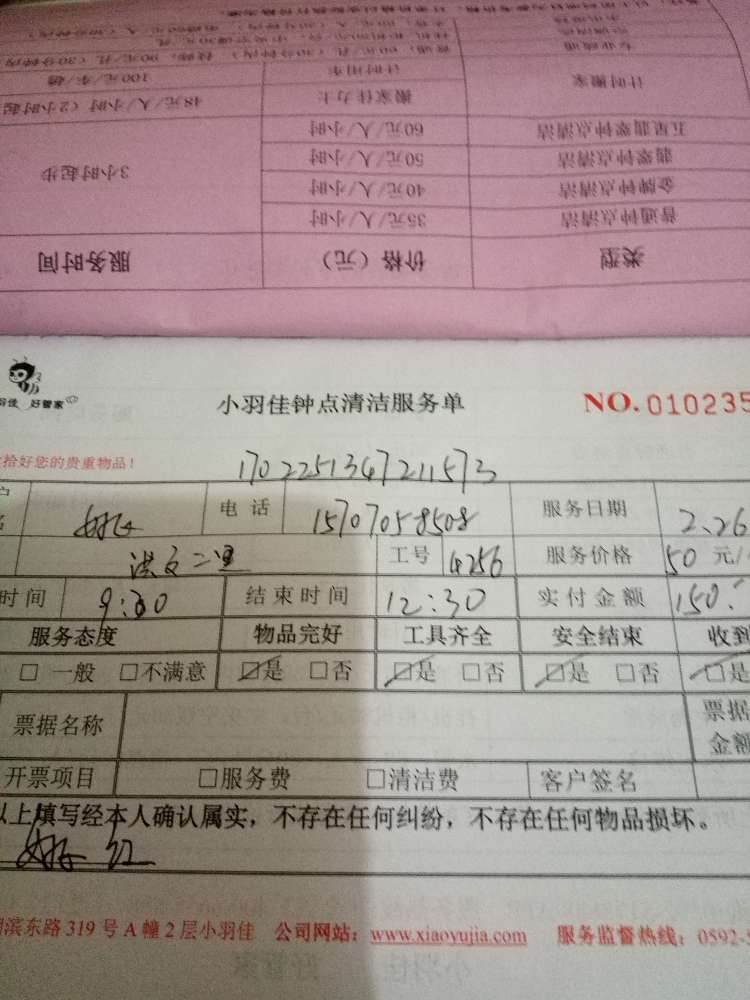 类型 价格（元） 服务时间
普通钟点清洁 35元/人/小时
金牌钟点清洁 40元/人/小时
翡翠钟点清洁 50元/人/小时 3小时起步
五星翡翠钟点清洁 60元/人/小时
计时搬家 搬家佳力士 48元/人/小时（2小时起
计时用车 100元/车/趟
羽佳 好管家
小羽佳钟点清洁服务单 NO.010235
拾好您的贵重物品！
1702251347211573
电话 15707058508 服务日期 2.26
洪文二里 工号 4256 服务价格 50 元/
时间 9:30 结束时间 12:30 实付金额 150.
服务态度 物品完好 工具齐全 安全结束 收到
□ 一般 □不满意 ☑是 □否 ☑是 □否 ☑是 □否 ☑是
票据名称 票据
金额
开票项目 □服务费 □清洁费 客户签名
以上填写经本人确认属实，不存在任何纠纷，不存在任何物品损坏。
滨东路319号A幢2层小羽佳 公司网站：www.xiaoyujia.com 服务监督热线：0592-5